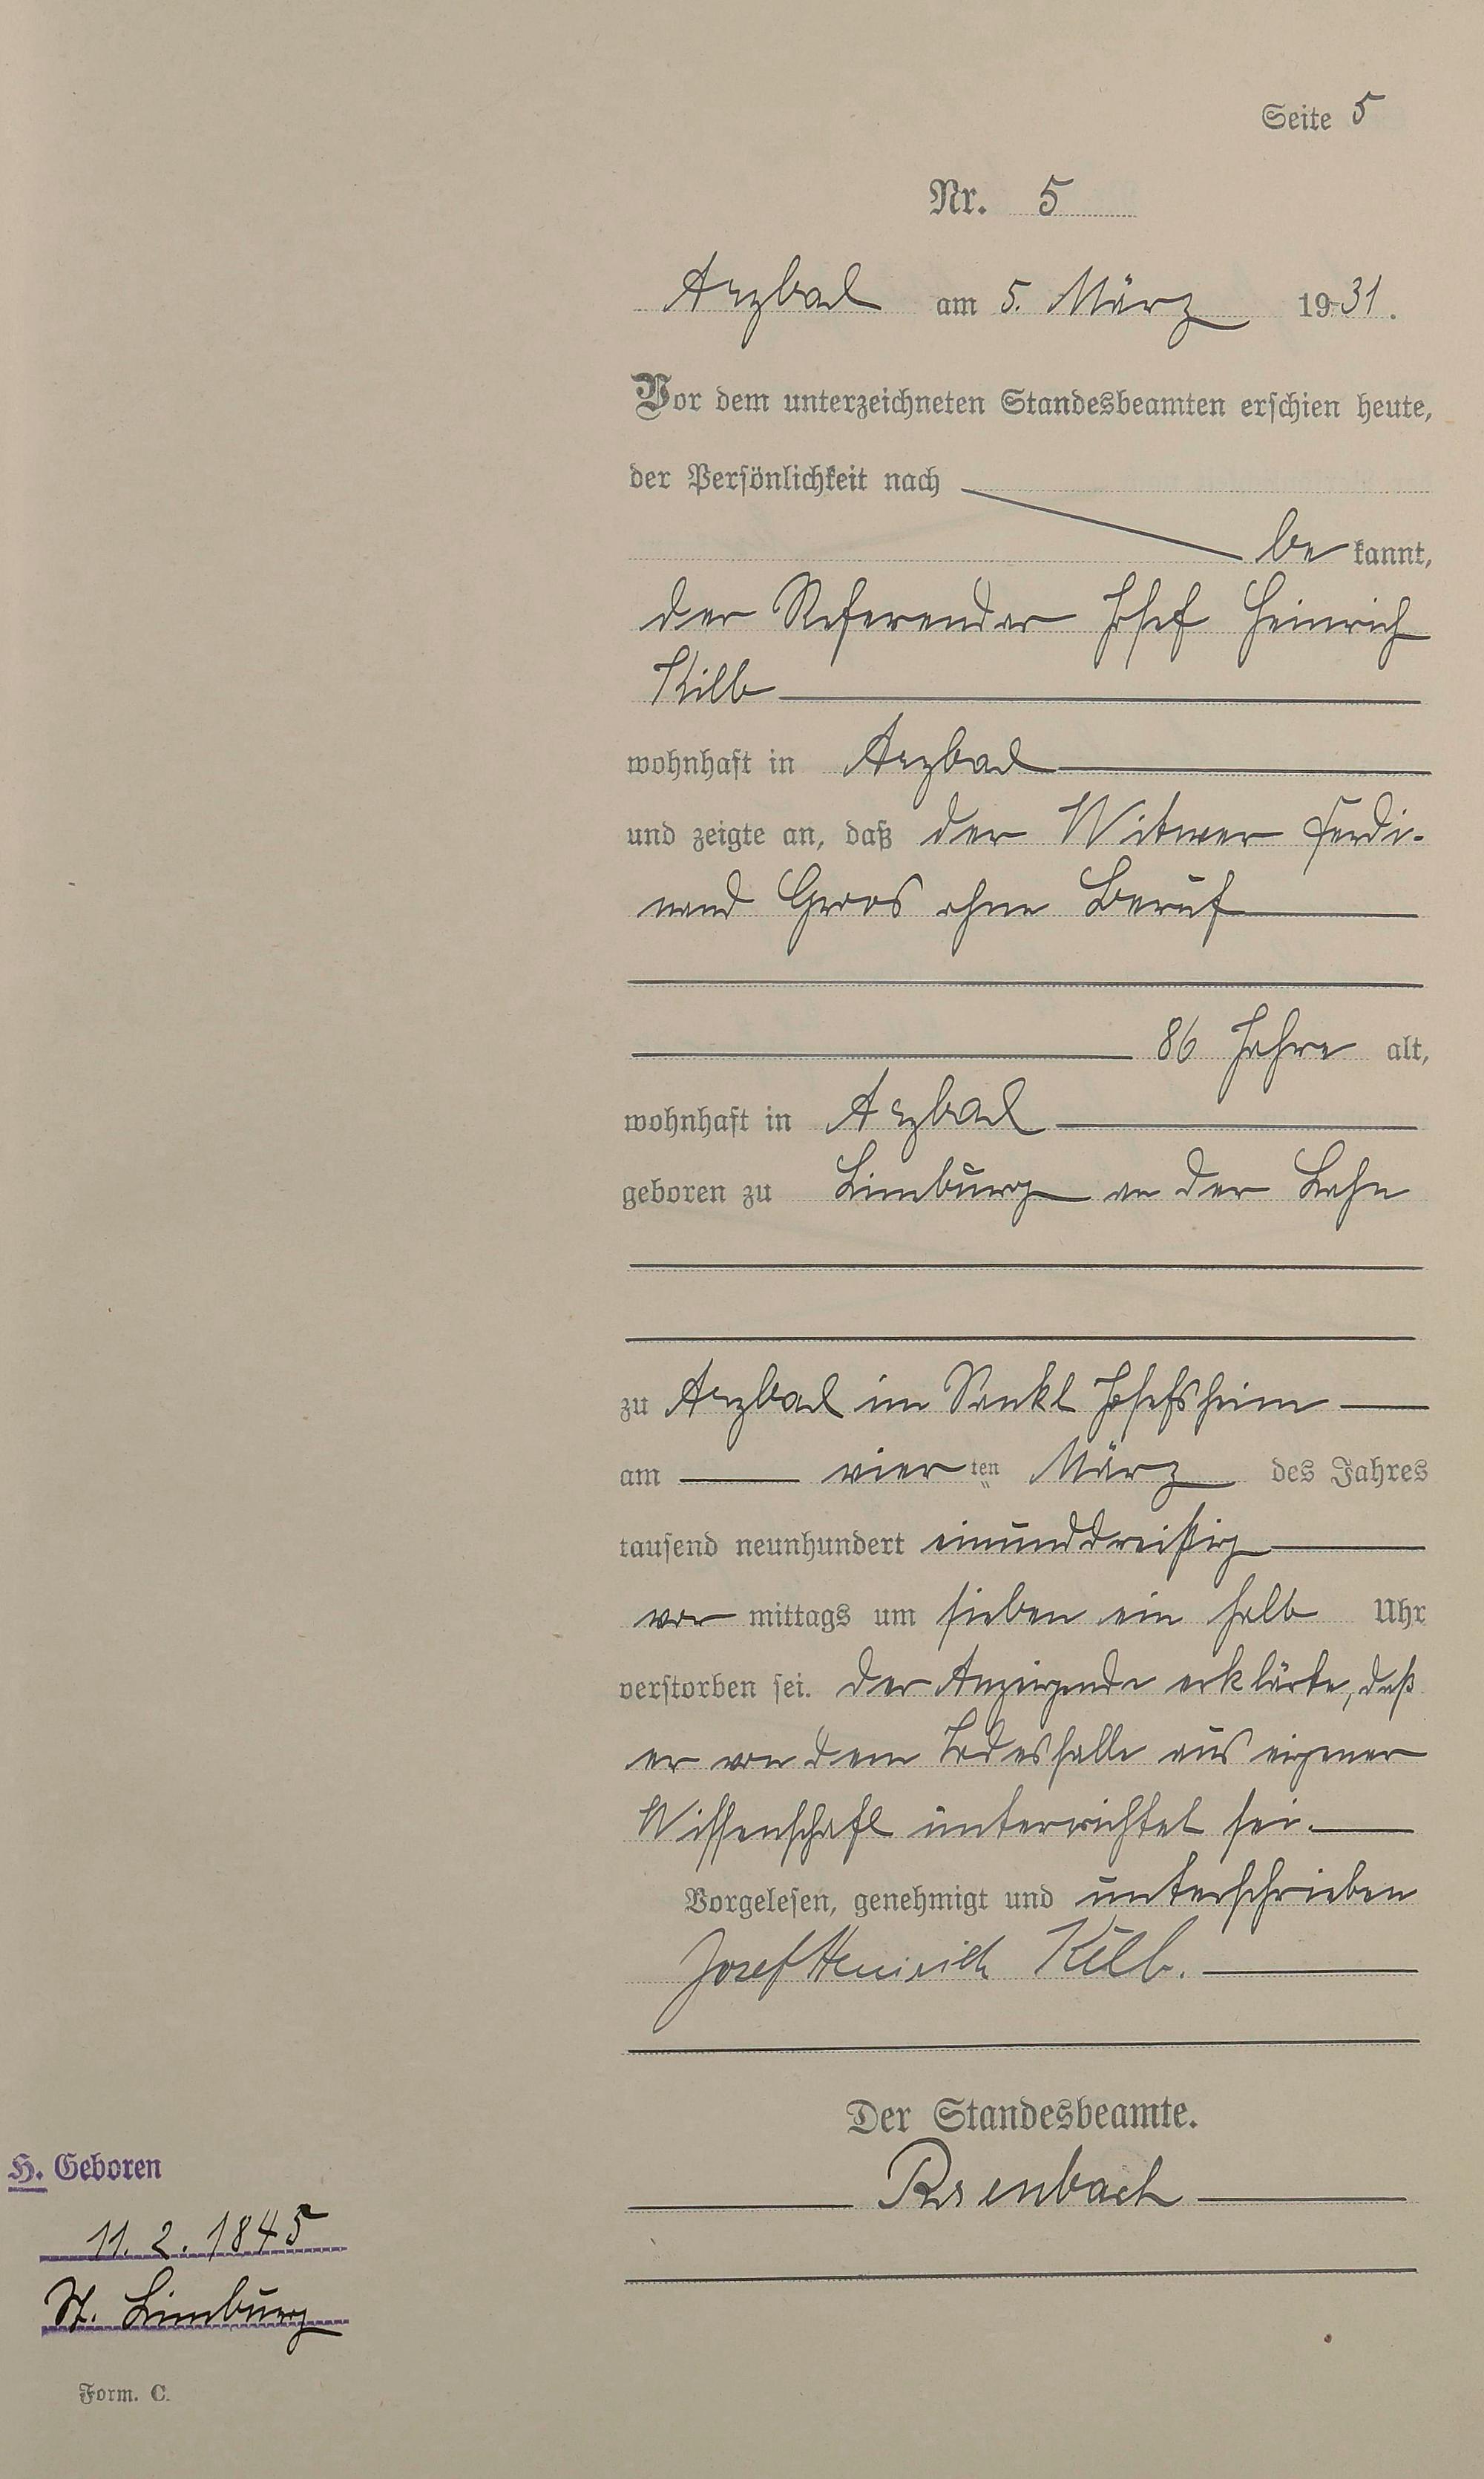 Seite 5
Nr. 5
Arzbach am 5. März 1931.
Vor dem unterzeichneten Standesbeamten erschien heute,
der Persönlichkeit nach
be kannt,
der Referendar Josef Heinrich
Kilb
wohnhaft in Arzbach
und zeigte an, daß der Witwer Ferdi-
nand Groos ohne Beruf
86 Jahre alt,
wohnhaft in Arzbach
geboren zu Limburg an der Lahn
zu Arzbach im Sankt Josefsheim
am vier ten März des Jahres
tausend neunhundert einunddreißig
vor mittags um sieben ein halb Uhr
verstorben sei. Der Anzeigende erklärte, daß
er von dem Todesfalle aus eigener
Wissenschaft unterrichtet sei.
Vorgelesen, genehmigt und unterschrieben
Josef Heinrich Kilb.
Der Standesbeamte.
H. Geboren
11. 2. 1845
St. Limburg
Form. C.